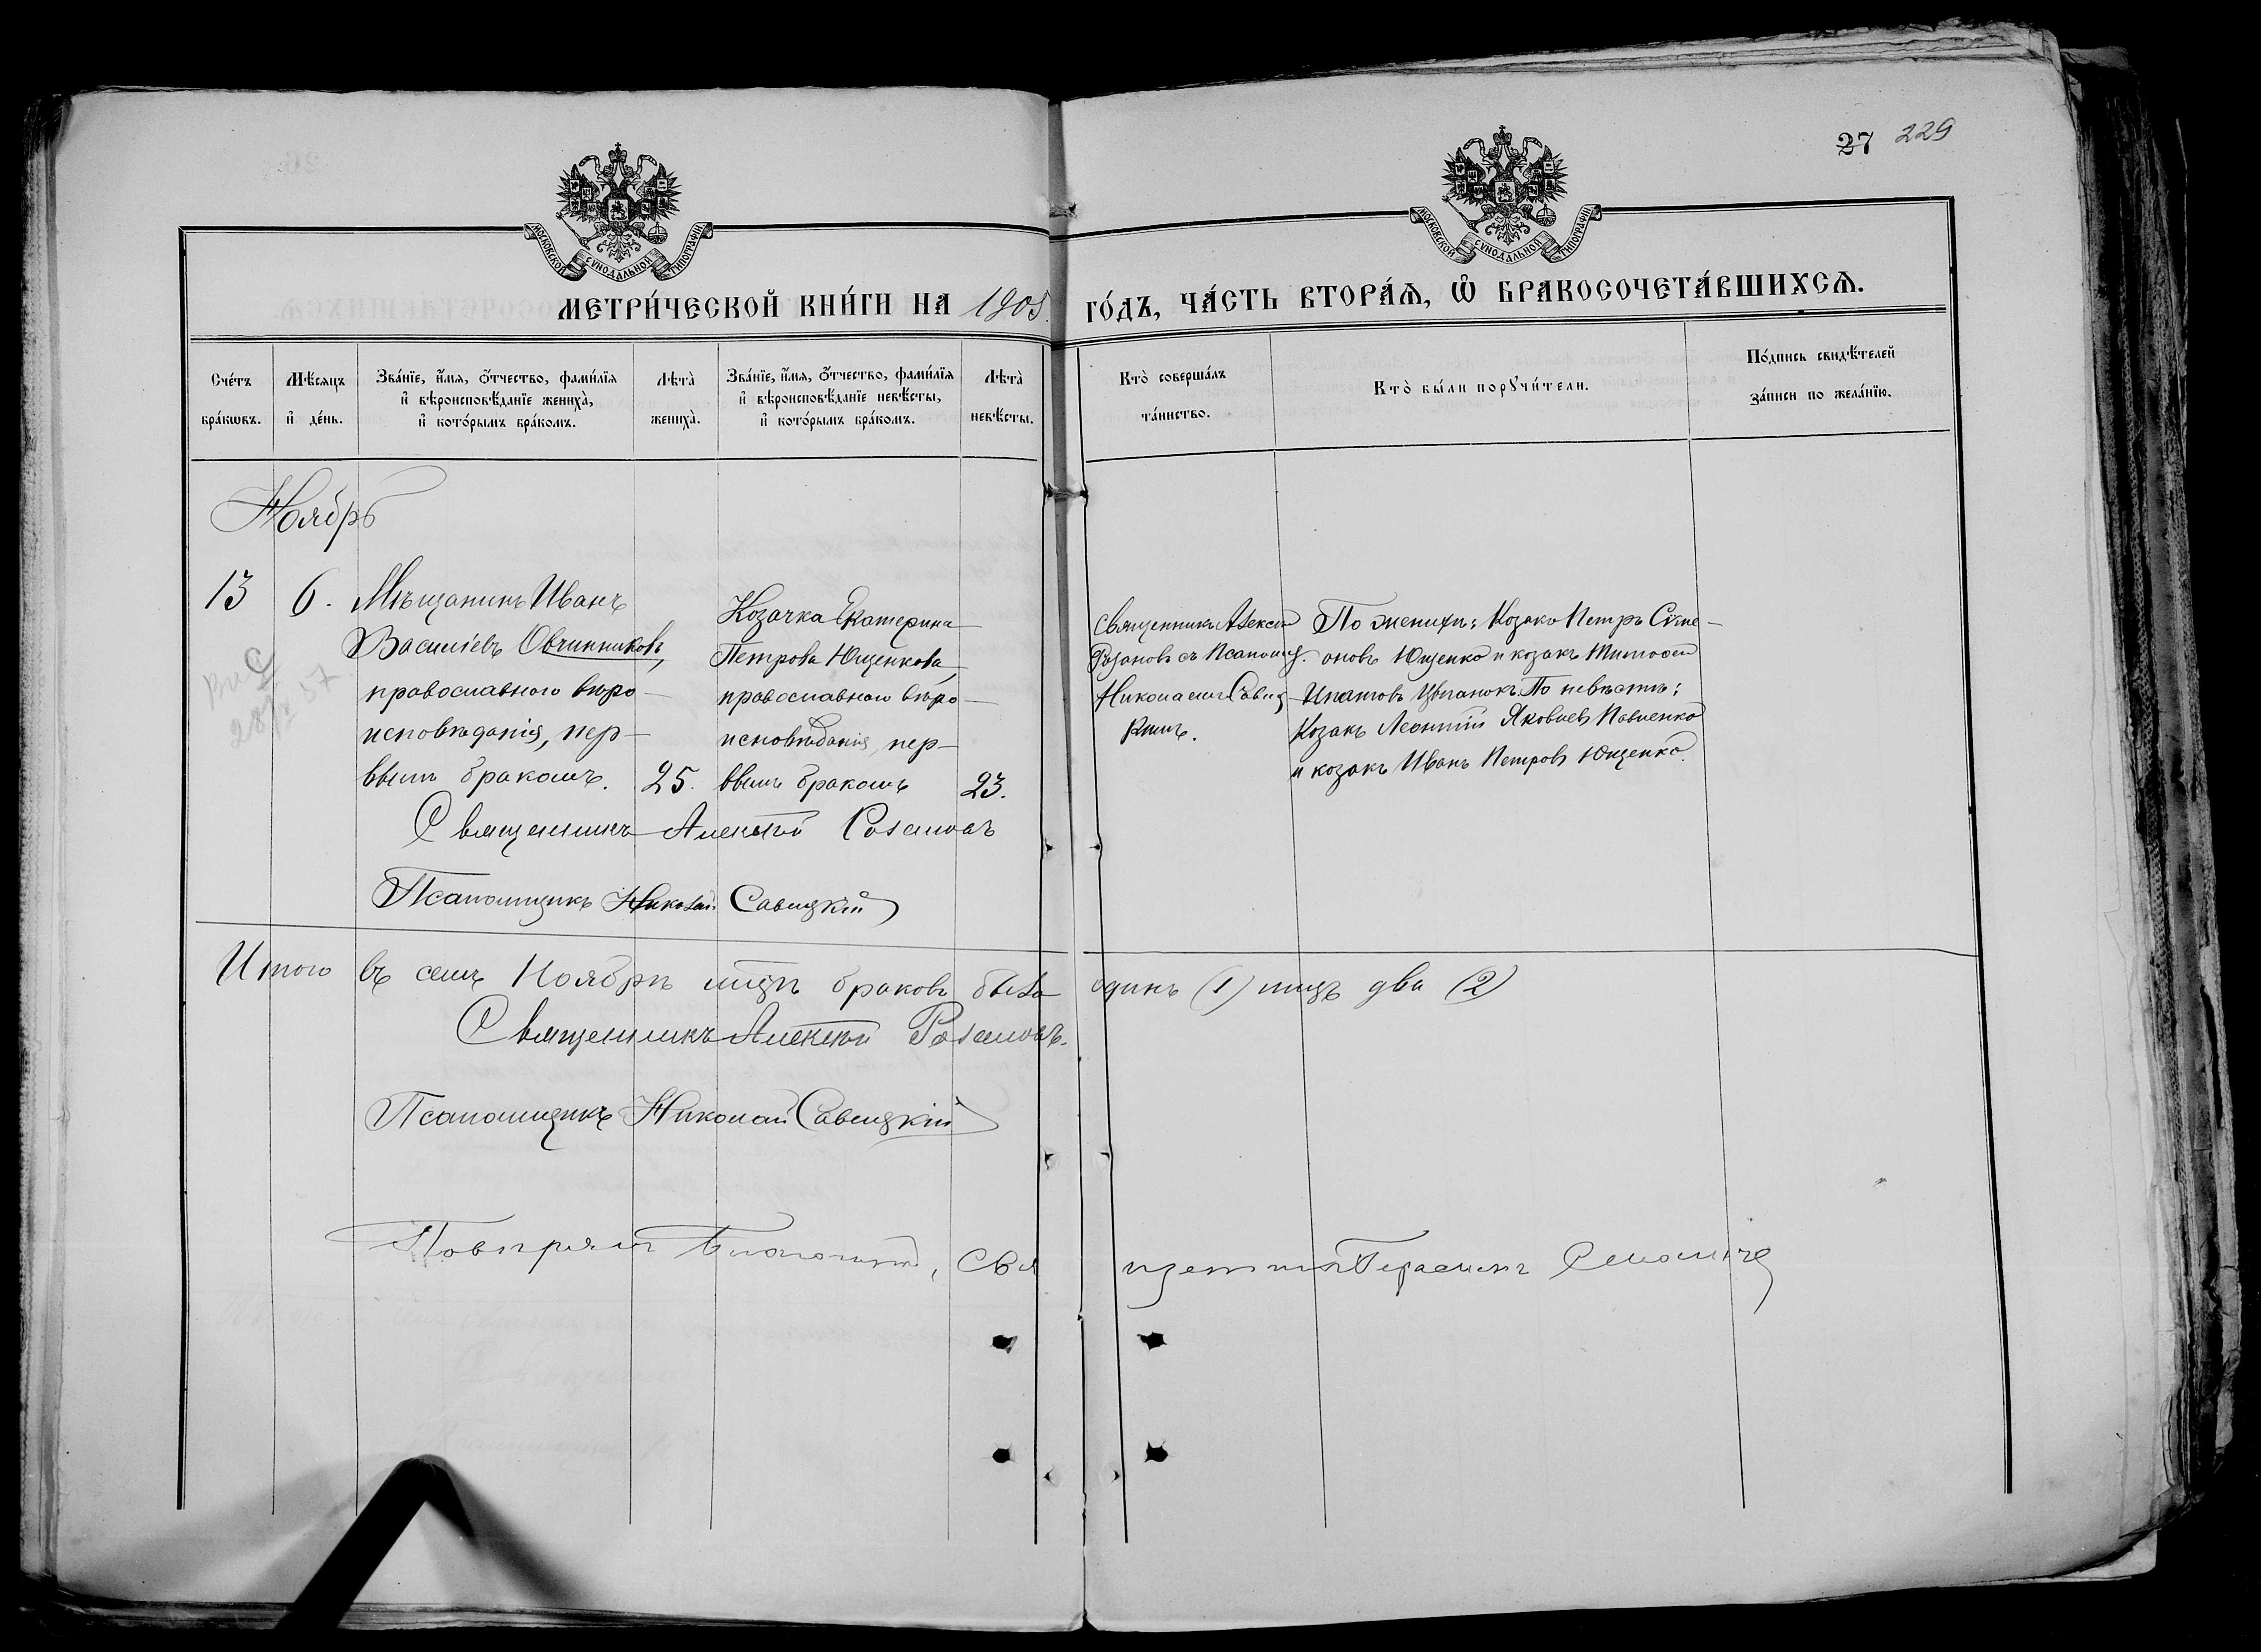 27 229
МОСКОВСКОЙ СѴНОДАЛЬНОЙ ТИПОГРАФІИ
МОСКОВСКОЙ СѴНОДАЛЬНОЙ ТИПОГРАФІИ
МЕТРИ́ЧЕСКОЙ КНИ́ГИ НА 1905 ГО́ДЪ, ЧА́СТЬ ВТОРА́Ѧ, Ѽ БРАКОСОЧЕТА́ВШИХСѦ.
Сче́тъ
бра́кωвъ.
Мѣ́сяцъ
и҆ де́нь.
Зва́нїе, и҆́мя, ѻ҆́тчество, фами́лїя
и҆ вѣроисповѣ́данїе жениха̀,
и҆ кото́рымъ бра́комъ.
Лѣта̀
жениха̀.
Зва́нїе, и҆́мя, ѻ҆́тчество, фами́лїя
и҆ вѣроисповѣ́данїе невѣ́сты,
и҆ кото́рымъ бра́комъ.
Лѣта̀
невѣ́сты.
Кто̀ соверша́лъ
та́инство.
Кто̀ бы́ли порꙋчи́тели.
По́дпись свидѣ́телей
за́писи по жела́нїю.
Ноябрь
13
6.
Мѣщанинъ Иванъ
Василіевъ Овчинниковъ,
православнаго вѣро-
исповѣданія, пер-
вымъ бракомъ.
25.
Козачка Екатерина
Петрова Ющенкова,
православнаго вѣро-
исповѣданія, пер-
вымъ бракомъ
23.
Священникъ Алексій
Розановъ съ Псаломщ.
Николаемъ Савиц-
кимъ.
По женихѣ: Козакъ Петръ Сѵме-
оновъ Ющенко и козакъ Тимоѳей
Ипатовъ Цыганокъ. По невѣстѣ:
Козакъ Леонтій Яковлевъ Павленко
и козакъ Иванъ Петровъ Ющенко.
Священникъ Алексѣй Розановъ
Псаломщикъ Николай Савицкій
Итого въ семъ Ноябрѣ мцѣ браковъ было одинъ (1) лицъ два (2)
Священникъ Алексѣй Розановъ.
Псаломщикъ Николай Савицкій
Повѣрялъ Священникъ Герасимъ